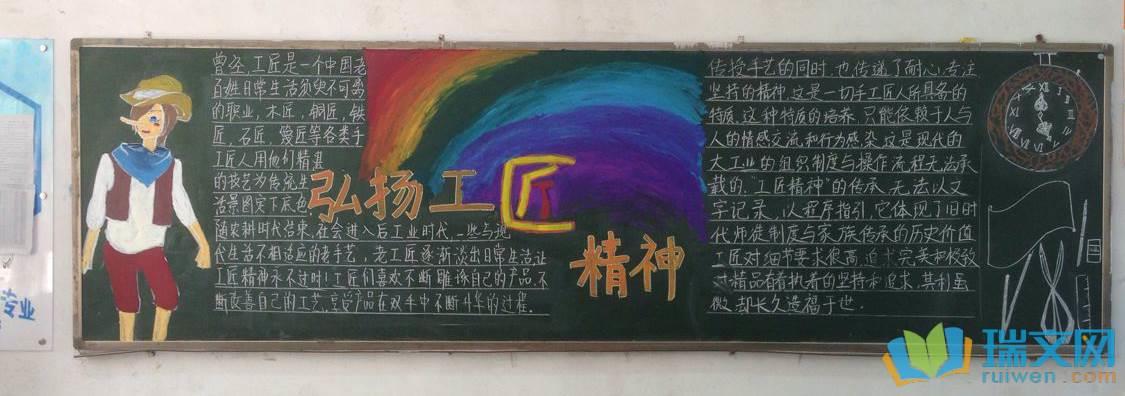 曾经,工匠是一个中国老
百姓日常生活须臾不可离
的职业,木匠、铜匠、铁
匠、石匠、篾匠等各类手
工匠人用他们精湛
的技艺为传统生
活景图定下底色。
随农耕时代结束,社会进入后工业时代,一些与现
代生活不相适应的老手艺、老工匠逐渐淡出日常生活,让
工匠精神永不过时!工匠们喜欢不断雕琢自己的产品,不
断改善自己的工艺,享受产品在双手中不断升华的过程。
弘扬工匠
精神
传授手艺的同时,也传递了耐心、专注
坚持的精神,这是一切手工匠人所具备的
特质。这种特质的培养,只能依赖于人与
人的情感交流和行为感染,这是现代的
大工业的组织制度与操作流程无法承
载的。“工匠精神”的传承,无法以文
字记录,以程序指引,它体现了旧时
代师徒制度与家族传承的历史价值
工匠对细节要求很高,追求完美和极致
对精品有着执着的坚持和追求,其利虽
微,却长久造福于世。
专业
瑞文网
ruiwen.com